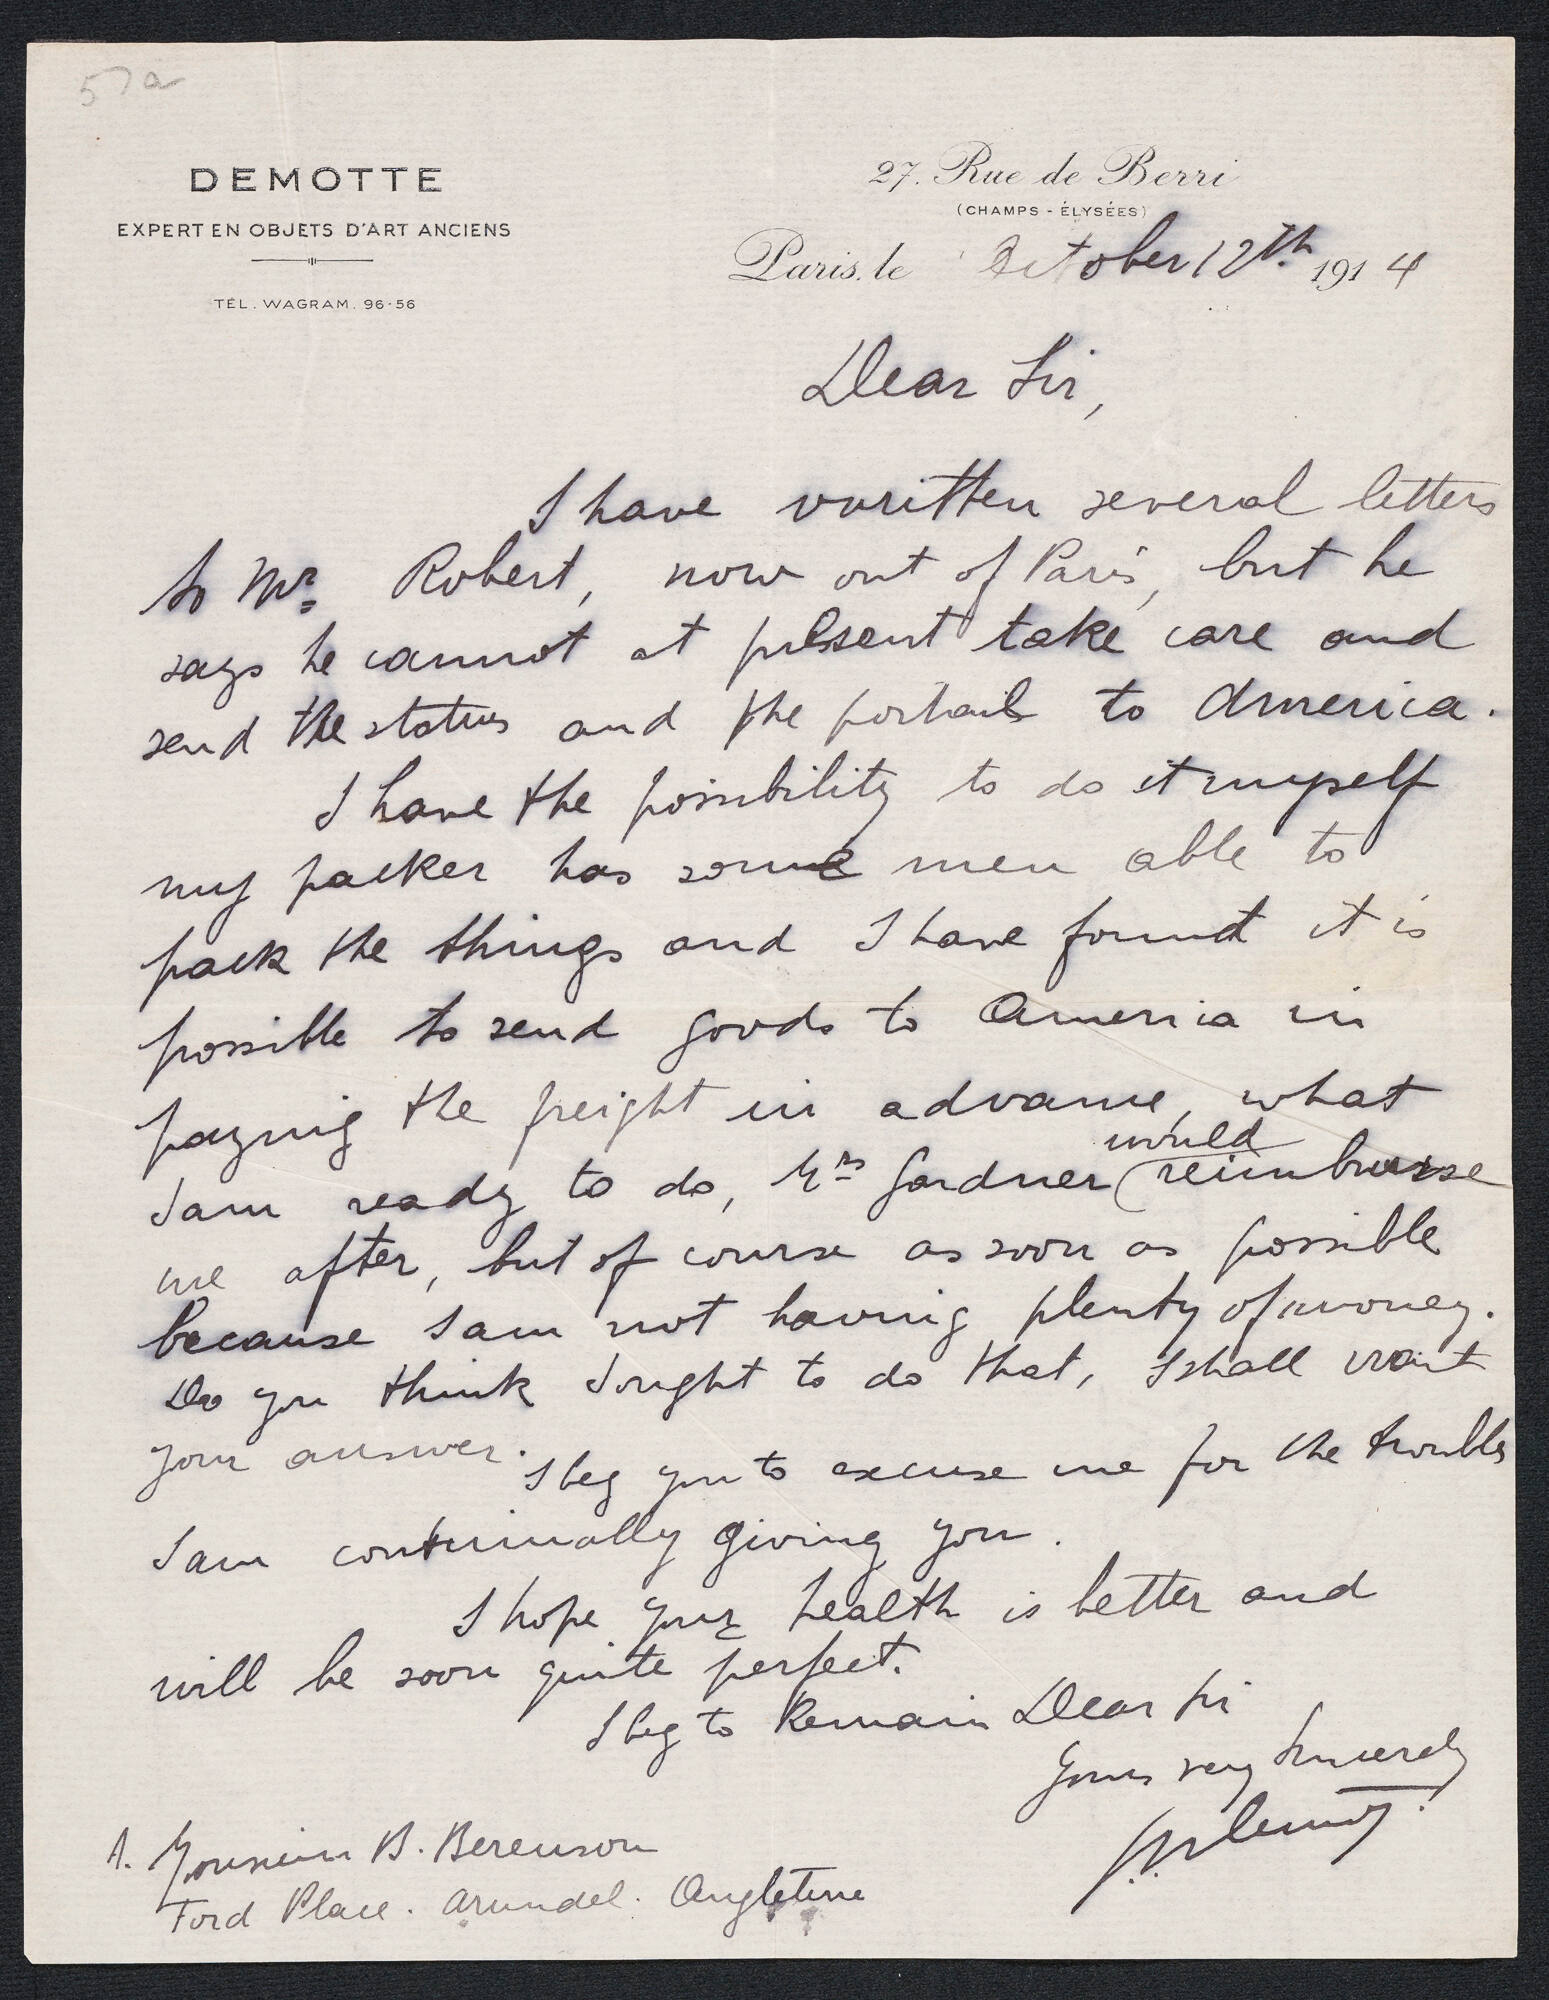 57a
DEMOTTE
EXPERT EN OBJETS D'ART ANCIENS
TÉL. WAGRAM. 96-56
27. Rue de Berri
(CHAMPS-ÉLYSÉES)
Paris, le October 12th 1914
Dear Sir,
I have written several letters
to Mr. Robert, now out of Paris, but he
says he cannot at present take care and
send the status and the portrails to America.
I have the possibility to do it myself
my packer has some men able to
pack the things and I have found it is
possible to send goods to America in
paynig the freight in advance, what
would
I am ready to do, Mrs Gardner (reimburse
me after, but of course as soon as possible
because I am not having plenty of money.
Do you think I ought to do that, I shall wait
your answer. I beg you to excuse me for the troubles
I am continually giving you.
I hope your health is better and
will be soon quite perfect.
I beg to Remain Dear Sir
Yours very Sincerely
A. Monsieur B. Berenson
Ford Place. Arundel. Angleterre